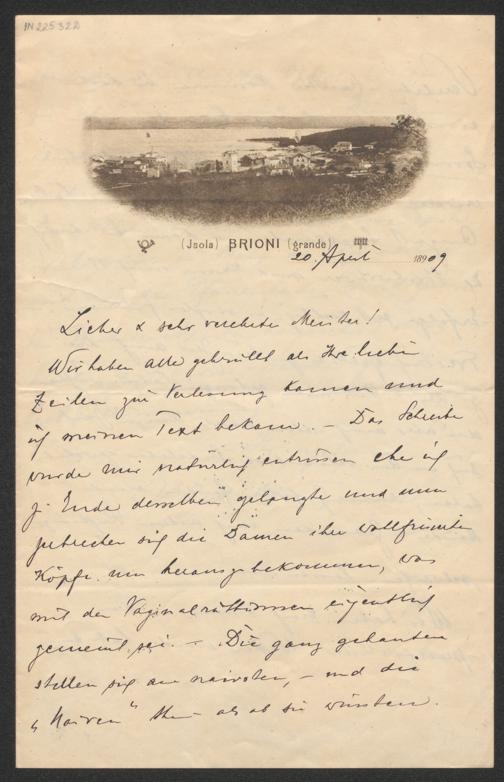 IN 225322
(Jsola) BRIONI (grande)
20. April 1909
Lieber & sehr verehrter Meister!
Wir haben alle gebrüllt als Ihre lieben
Zeilen zur Verlesung kamen und
ich meinen Text bekam. – Das Schreiben
wurde mir natürlich entrissen ehe ich
z. Ende desselben gelangte und nun
zerbrechen sich die Damen ihre
Köpfe um herauszubekommen, was
mit den eigentlich
gemeint sei. – Die ganz
stellen sich am naivsten, – und die
„Naiven" thun als ob sie wüssten.